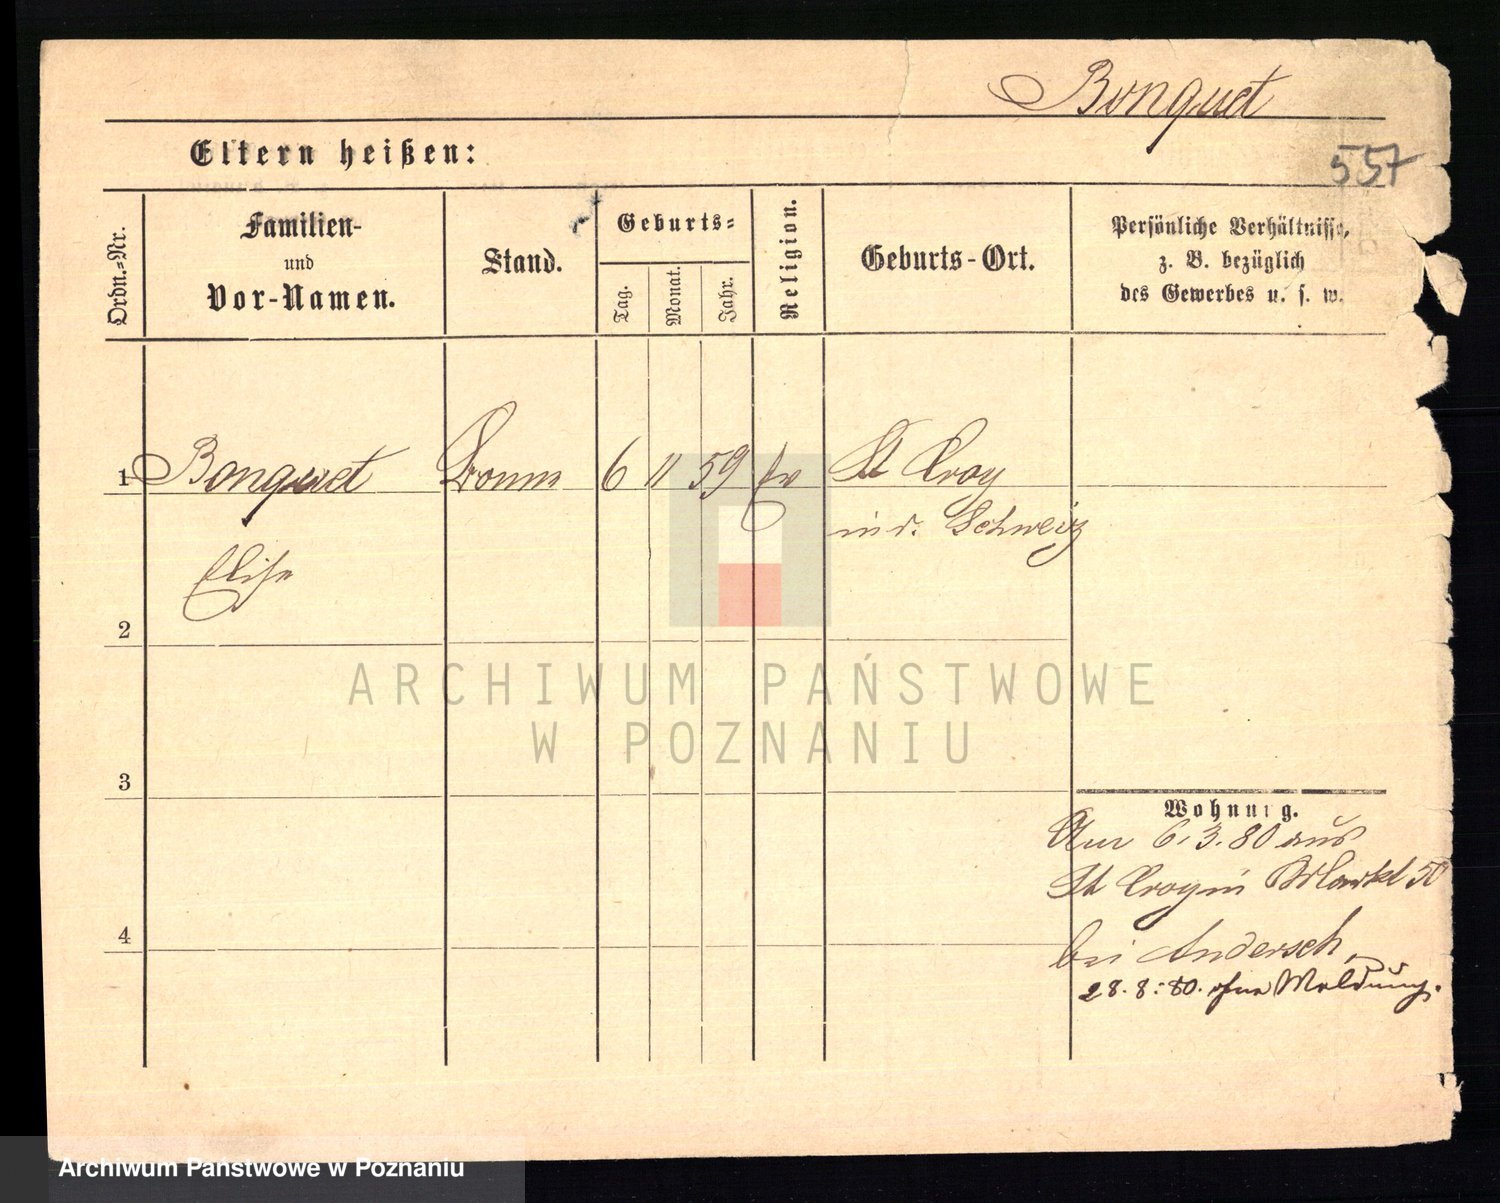 Bonquet
557
Eltern heißen:
Ordn.-Nr.
Familien-
und
Vor-Namen.
Stand.
Geburts-
Tag.
Monat.
Jahr.
Religion.
Geburts-Ort.
Persönliche Verhältnisse,
z. B. bezüglich
des Gewerbes u. s. w.
1 Bonquet Bonne 6 11 59 ev St Croy
in d. Schweiz
Elise
2
3
4
Wohnung.
Am 6.3.80 aus
St Croy in Markt 50
bei Andersch,
28.8.80. ohne Meldung.
ARCHIWUM PAŃSTWOWE
W POZNANIU
Archiwum Państwowe w Poznaniu